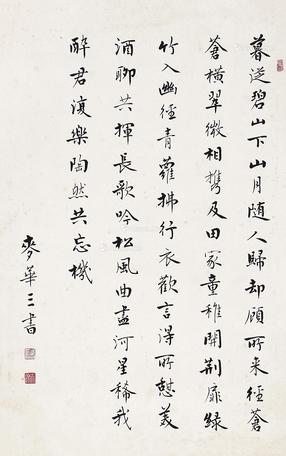 暮從碧山下山月随人歸却顧所来徑蒼
蒼橫翠微相携及田家童稚開荆扉緑
竹入幽徑青蘿拂行衣歡言得所憩美
酒聊共揮長歌吟松風曲盡河星稀我
醉君復樂陶然共忘機
麥華三書